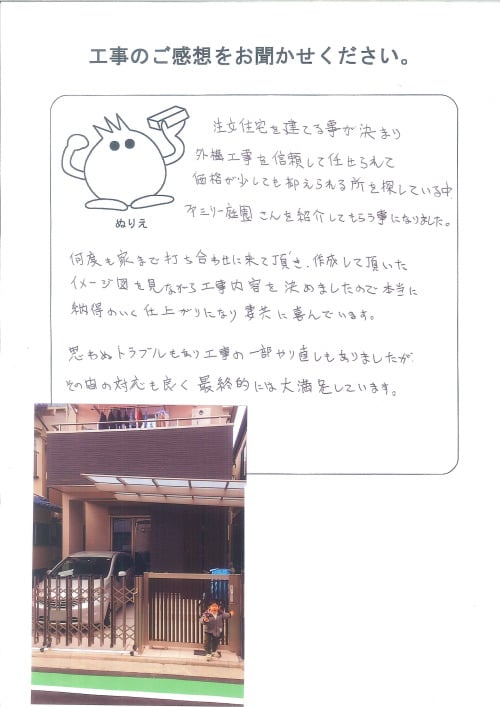 工事のご感想をお聞かせください。
ぬりえ
注文住宅を建てる事が決まり
外構工事を信頼して任せられて
価格が少しでも抑えられる所を探している中、
ファミリー庭園さんを紹介してもらう事になりました。
何度も家まで打ち合わせに来て頂き、作成して頂いた
イメージ図を見ながら工事内容を決めましたので本当に
納得のいく仕上がりになり妻共に喜んでいます。
思わぬトラブルもあり工事の一部やり直しもありましたが
その後の対応も良く最終的には大満足しています。